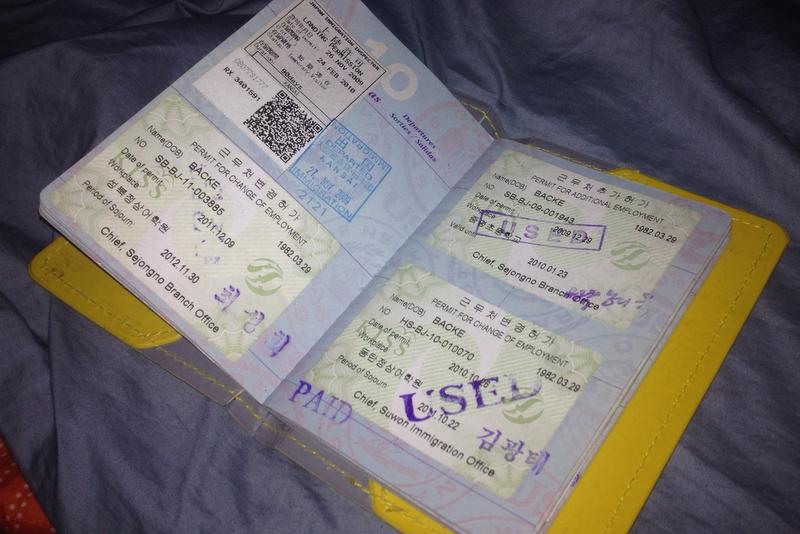 JAPAN IMMIGRATION INSPECTOR
上陸許可
LANDING PERMISSION
26 NOV 2009
24 FEB 2010
短期滞在
Temporary Visitor
90days
080779177
RX 3401591
10
Departures
Sorties / Salidas
DEPARTED
27. NOV. 2009
KANSAI
IMMIGRATION
2121
KISS
근무처변경허가
PERMIT FOR CHANGE OF EMPLOYMENT
Name(DOB) BACKE 1982.03.29
NO SB-BJ-11-003885
Date of permit 2011.12.09
Workplace
성북정상어학원
Period of Sojourn 2012.11.30
Chief, Sejongno Branch Office
근무처추가허가
PERMIT FOR ADDITIONAL EMPLOYMENT
Name(DOB) BACKE 1982.03.29
NO SB-BJ-09-001943
Date of permit 2009.12.29
USED
Valid until 2010.01.23
Chief, Sejongno Branch Office
KISS
근무처변경허가
PERMIT FOR CHANGE OF EMPLOYMENT
Name(DOB) BACKE 1982.03.29
NO HS-BJ-10-010070
Date of permit
Workplace
동탄정상어학원
Period of Sojourn
USED
Chief, Suwon Immigration Office
김광태
PAID